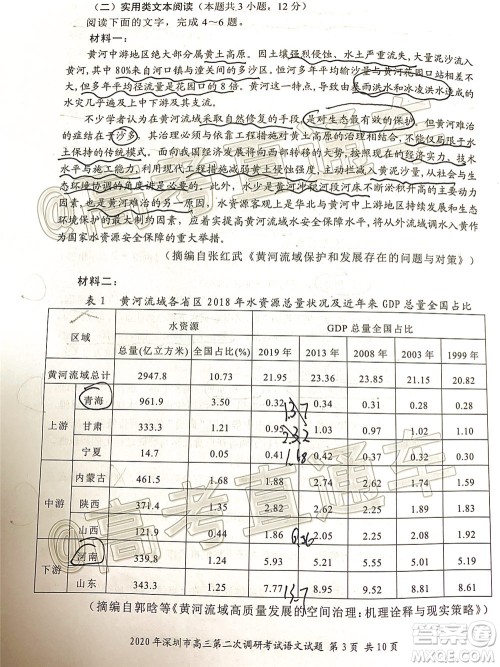 （二）实用类文本阅读（本题共3小题，12分）
阅读下面的文字，完成4～6题。
材料一：
黄河中游地区绝大部分属黄土高原。因土壤强烈侵蚀，水土流失严重，大量泥沙流入
黄河，其中80%来自河口镇与潼关间的多沙区。但河多年平均输沙量
花园口的8倍。黄河这一特点，导致由暴雨洪水和冰凌洪水造成的
水灾几乎遍及上中下游及其支流。
不少学者认为在黄河流域采取自然修复的手段，是对生态最有效的保护，但黄河治
由于沙多，其治理必须与依靠工程措施对黄土高原的，不能仅局限于水
土保持的传统模式。面向我国经济建设将向西部转移的大势，技术水
平与施工能力，利用现代工程措施
态环境协调的角度讲是必要的。此外，水少是黄河冲积河段河床不断淤积升高的主要原
因，也是黄河难治的另一原因。水资源客观上是华北与黄河中上游地区社会经济与生态
环境保护的最大制约因素，应寻求提高黄河流域水安全保障水平，将从外流域调水入黄作
为国家水资源安全保障的重大举措。
（摘编自张红武《黄河流域保护和发展存在的问题与对策》）
材料二：
表1 黄河流域各省区2018年水资源总量状况及近年来GDP总量全国占比
区域 水资源 GDP总量全国占比
总量(亿立方米) 全国占比(%) 2019年 2013年 2008年 2003年 1999年
黄河流域总计 2947.8 10.73 21.95 23.36 23.85 21.15 20.82
上游 青海 961.9 3.50 0.32 0.34 0.31 0.28 0.28
甘肃 333.3 1.21 0.95 0.98 1.01 1.04
宁夏 14.7 0.05 0.41 0.42 0.37 0.32 0.31
中游 内蒙古 461.5 1.68 1.88 2.54 1.72 1.51
陕西 371.4 2.61 2.53 1.86 1.73
山西 121.9 0.44 1.86 2.05 1.81
下游 河南 339.8 1.24 5.93 5.51 5.01 5.19
山东 343.3 1.25 7.77 8.94 9.62 8.77 8.61
（摘编自郭晗等《黄河流域高质量发展的空间治理：机理诠释与现实策略》）
2020年深圳市高三第二次调研考试语文试题 第3页 共10页
@高考直通车